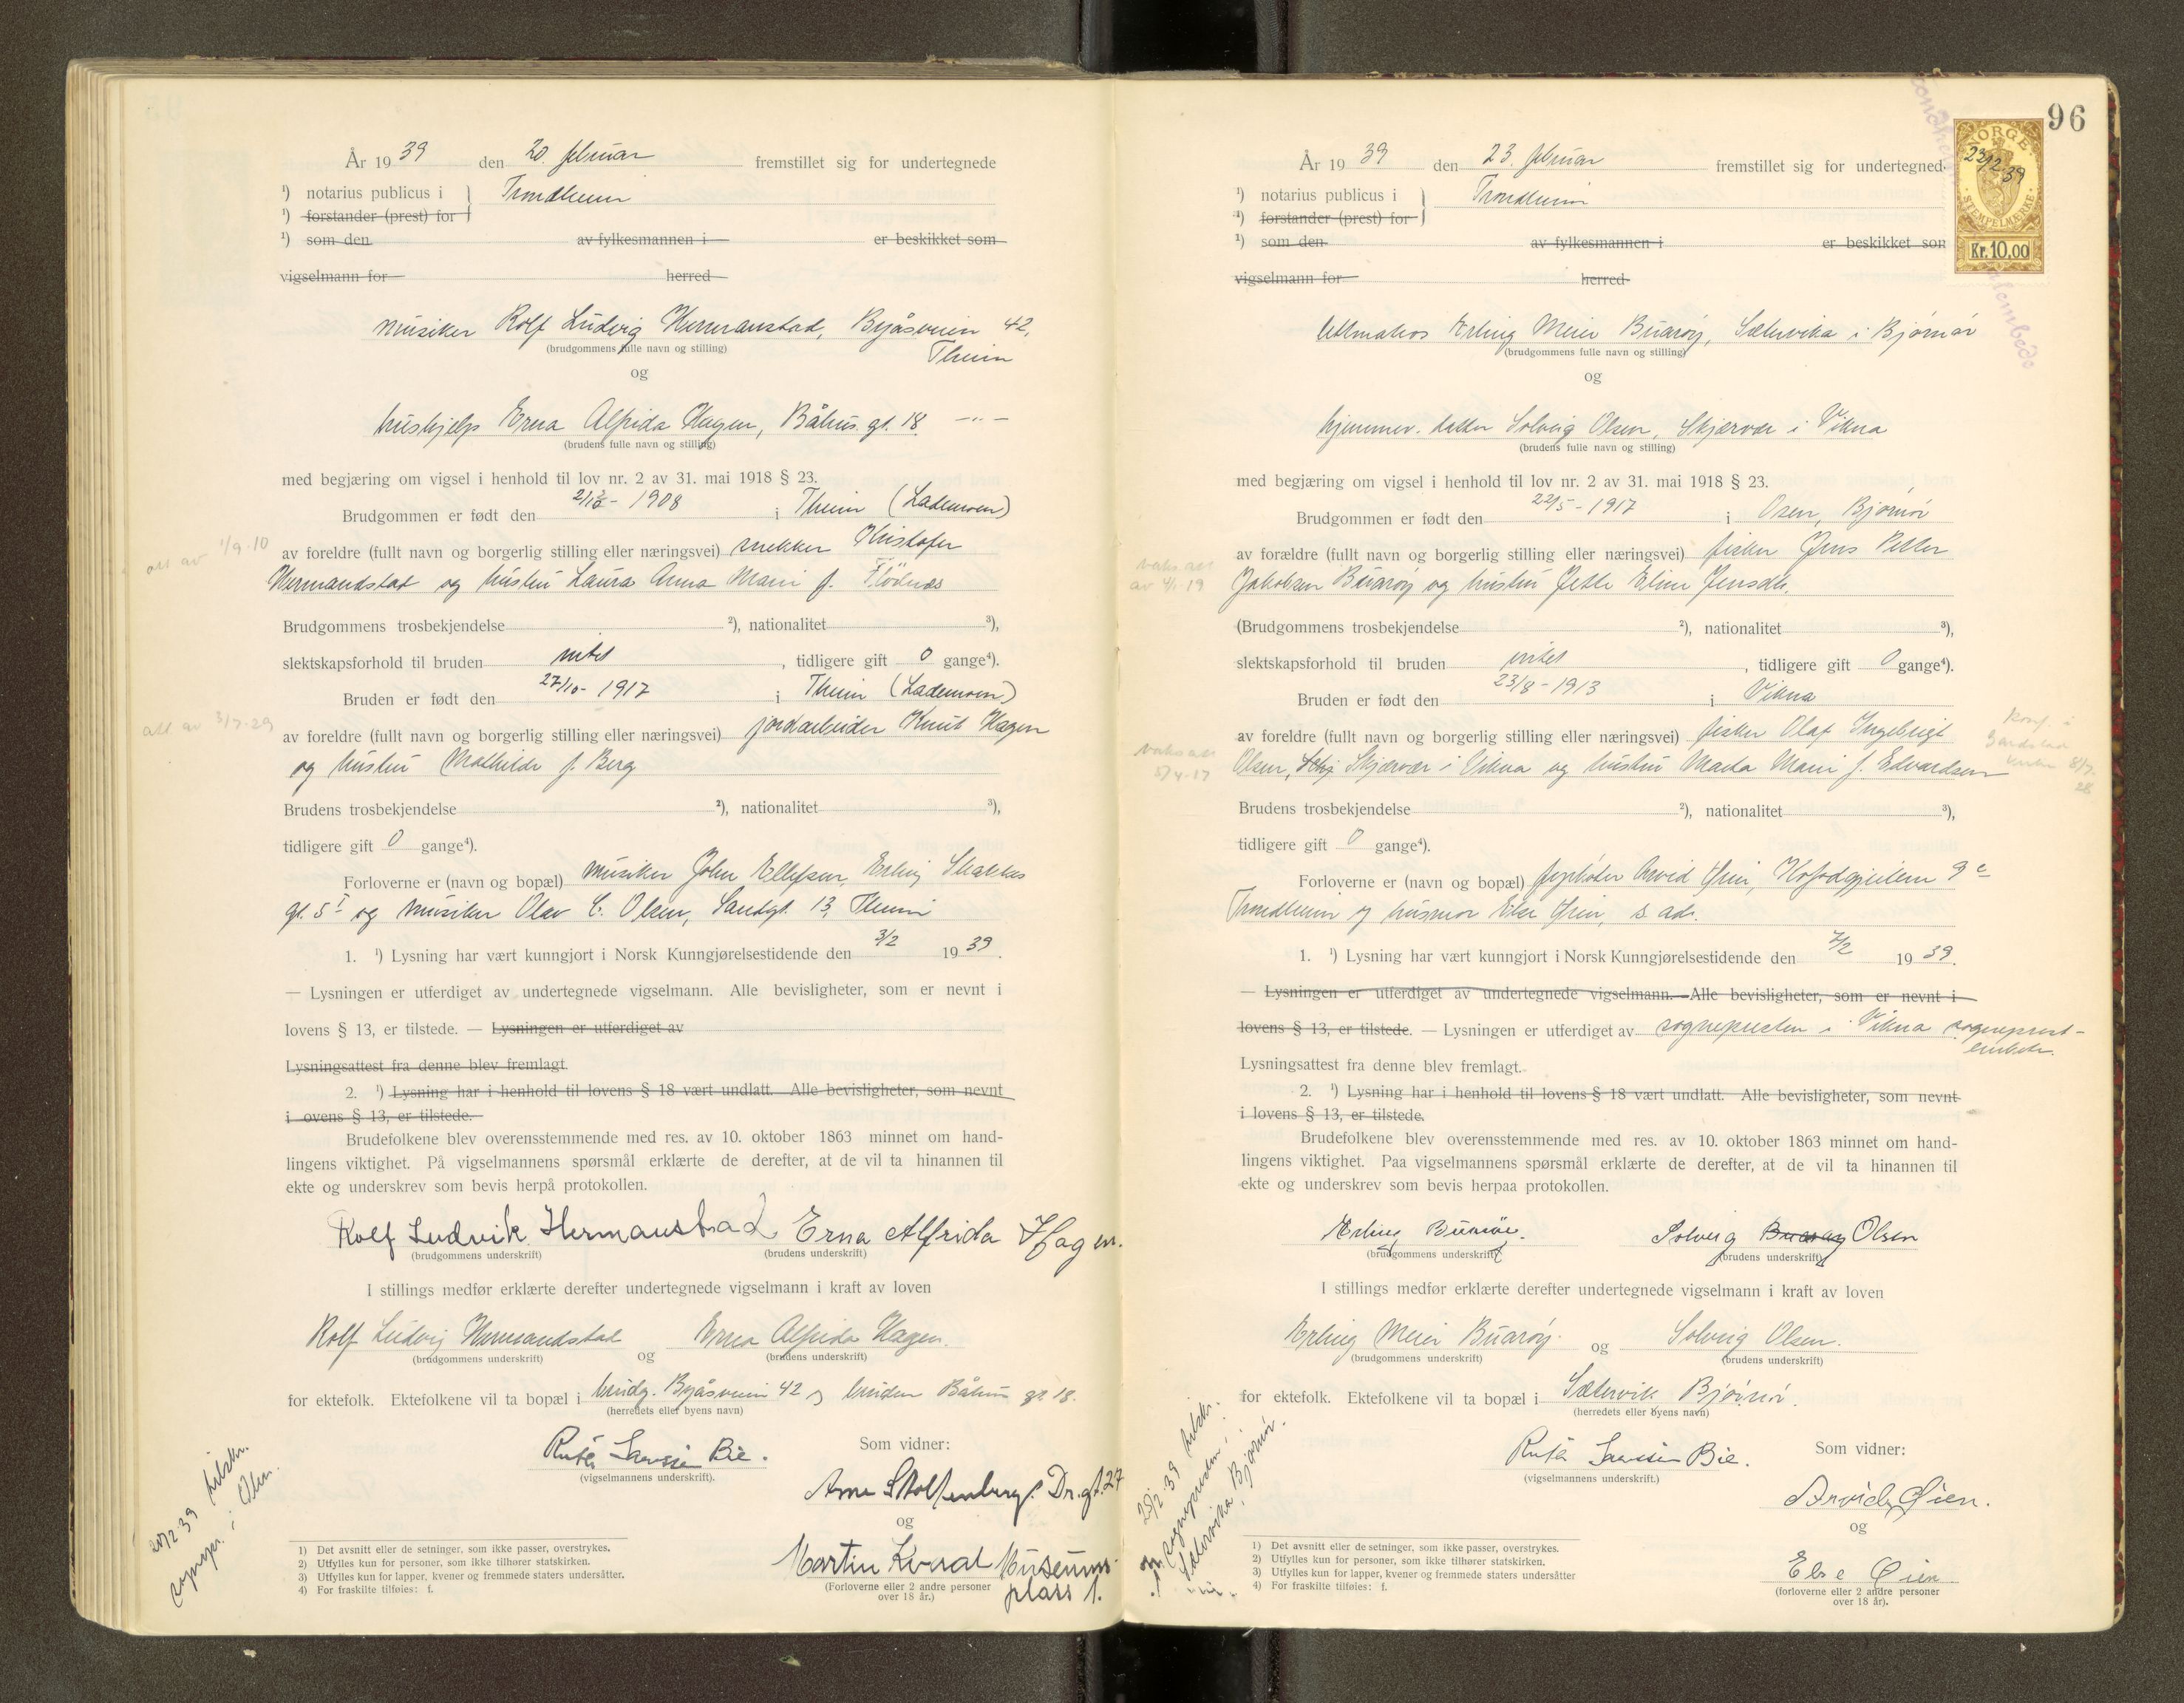 År 1939 den 20. februar fremstillet sig for undertegnede
¹) notarius publicus i } Trondheim
¹) forstander (prest) for
¹) som den av fylkesmannen i er beskikket som
vigselmann for herred
musiker Rolf Ludvig Hermanstad, Byåsveien 42,
Theim
(brudgommens fulle navn og stilling)
og
hushjelp Erna Alfrida Hagen, Båhus gt. 18. —"—
(brudens fulle navn og stilling)
med begjæring om vigsel i henhold til lov nr. 2 av 31. mai 1918 § 23.
Brudgommen er født den - 1908 i Theim (Lademoen)
att av 1/9-10
av foreldre (fullt navn og borgerlig stilling eller næringsvei) snekker Kristofer
Hermandstad og hustru Laura Anna Marie f. Flödnes
Brudgommens trosbekjendelse ²), nationalitet ³),
slektskapsforhold til bruden intet , tidligere gift 0 gange⁴).
Bruden er født den 27/10- 1917 i Theim (Lademoen)
att av 3/7-29
av foreldre (fullt navn og borgerlig stilling eller næringsvei) jordarbeider Knut Hagen
og hustru Mathilde f. Berg
Brudens trosbekjendelse ²), nationalitet ³),
tidligere gift 0 gange⁴).
Forloverne er (navn og bopæl) musiker John Ellefsen, Erling Skakkes
gt. 5 I og musiker Olav C. Olsen, Sandgt. 13, Theim
1. ¹) Lysning har vært kunngjort i Norsk Kunngjørelsestidende den 3/2 1939.
— Lysningen er utferdiget av undertegnede vigselmann. Alle bevisligheter, som er nevnt i
lovens § 13, er tilstede. — Lysningen er utferdiget av
Lysningsattest fra denne blev fremlagt
2. ¹) Lysning har i henhold til lovens § 18 vært undlatt. Alle bevisligheter, som nevnt
i ovens § 13, er tilstede.
Brudefolkene blev overensstemmende med res. av 10. oktober 1863 minnet om hand-
lingens viktighet. På vigselmannens spørsmål erklærte de derefter, at de vil ta hinannen til
ekte og underskrev som bevis herpå protokollen.
Rolf Ludvik Hermanstad Erna Alfrida Hagen.
(brudgommens underskrift) (brudens underskrift)
I stillings medfør erklærte derefter undertegnede vigselmann i kraft av loven
Rolf Ludvig Hermandstad og Erna Alfrida Hagen.
(brudgommens underskrift) (brudens underskrift)
for ektefolk. Ektefolkene vil ta bopæl i brudg. Byåsveien 42 og bruden Båhus gt 18.
(herredets eller byens navn)
Som vidner:
(vigselmannens underskrift).
Arne Stoltenberg. Dr.gt.27
og
Martin Kvaal Museums-
plass 1.
(Forloverne eller 2 andre personer
over 18 år.)
20/2-39 tilskr.
sognepr. i
1) Det avsnitt eller de setninger, som ikke passer, overstrykes.
2) Utfylles kun for personer, som ikke tilhører statskirken.
3) Utfylles kun for lapper, kvener og fremmede staters undersåtter.
4) For fraskilte tilføies: f.
96
NORGE
23/2 39
STEMPELMERKE
Kr. 10.00
År 1939 den 23. februar fremstillet sig for undertegned
¹) notarius publicus i } Trondheim
¹) forstander (prest) for
¹) som den av fylkesmannen i er beskikket som
vigselmann for herred
Erling Meier Buarøy, Sætervika i Bjørnør
(brudgommens fulle navn og stilling)
og
hjemmev. datter Solveig Olsen, Skjærvær i Vikna
(brudens fulle navn og stilling)
med begjæring om vigsel i henhold til lov nr. 2 av 31. mai 1918 § 23.
Brudgommen er født den 22/5 - 1917 i Osen, Bjørnør
vaks.att
av 4/1-19
av forældre (fullt navn og borgerlig stilling eller næringsvei) fisker Jens Petter
Jakobsen Buarøy og hustru Jette Eline Jensdtr.
(Brudgommens trosbekjendelse ²), nationalitet ³),
slektskapsforhold til bruden intet , tidligere gift 0 gange⁴).
Bruden er født den 23/8 - 1913 i Vikna
konf. i
Garstad
kirke 8/7-
28
vaks.att
5/4-17
av foreldre (fullt navn og borgerlig stilling eller næringsvei) fisker Olaf Ingebrigt
Olsen, Skjærvær i Vikna og hustru Marta Marie f. Edvardsen
Brudens trosbekjendelse ²), nationalitet ³),
tidligere gift 0 gange⁴).
Forloverne er (navn og bopæl) Arvid Øien, 9 c
Trondheim og husmor Else Øien, s. adr.
1. ¹) Lysning har vært kunngjort i Norsk Kunngjørelsestidende den 7/2 1939.
— Lysningen er utferdiget av undertegnede vigselmann. Alle bevisligheter, som er nevnt i
lovens § 13, er tilstede. — Lysningen er utferdiget av sognepresten i Vikna sogneprest-
embede.
Lysningsattest fra denne blev fremlagt.
2. ¹) Lysning har i henhold til lovens § 18 vært undlatt. Alle bevisligheter, som nevnt
i lovens § 13, er tilstede.
Brudefolkene blev overensstemmende med res. av 10. oktober 1863 minnet om hand-
lingens viktighet. Paa vigselmannens spørsmål erklærte de derefter, at de vil ta hinannen til
ekte og underskrev som bevis herpaa protokollen.
Erling Buarøe. Solveig Buarøy Olsen
(brudgommens underskrift) (brudens underskrift)
I stillings medfør erklærte derefter undertegnede vigselmann i kraft av loven
Erling Meier Buarøy. og Solveig Olsen.
(brudgommens underskrift) (brudens underskrift)
for ektefolk. Ektefolkene vil ta bopæl i Sætervik Bjørnør.
(herredets eller byens navn)
Som vidner:
(vigselmannens underskrift.)
Arvid Øien.
og
Else Øien
(forloverne eller 2 andre personer
over 18 år).
23/2-39 tilskr.
sognepresten i
Sætervika, Bjørnør.
1) Det avsnitt eller de setninger, som ikke passer, overstrykes.
2) Utfylles kun for personer, som ikke tilhører statskirken.
3) Utfylles kun for lapper, kvener og fremmede staters undersåtter
4) For fraskilte tilføies: f.